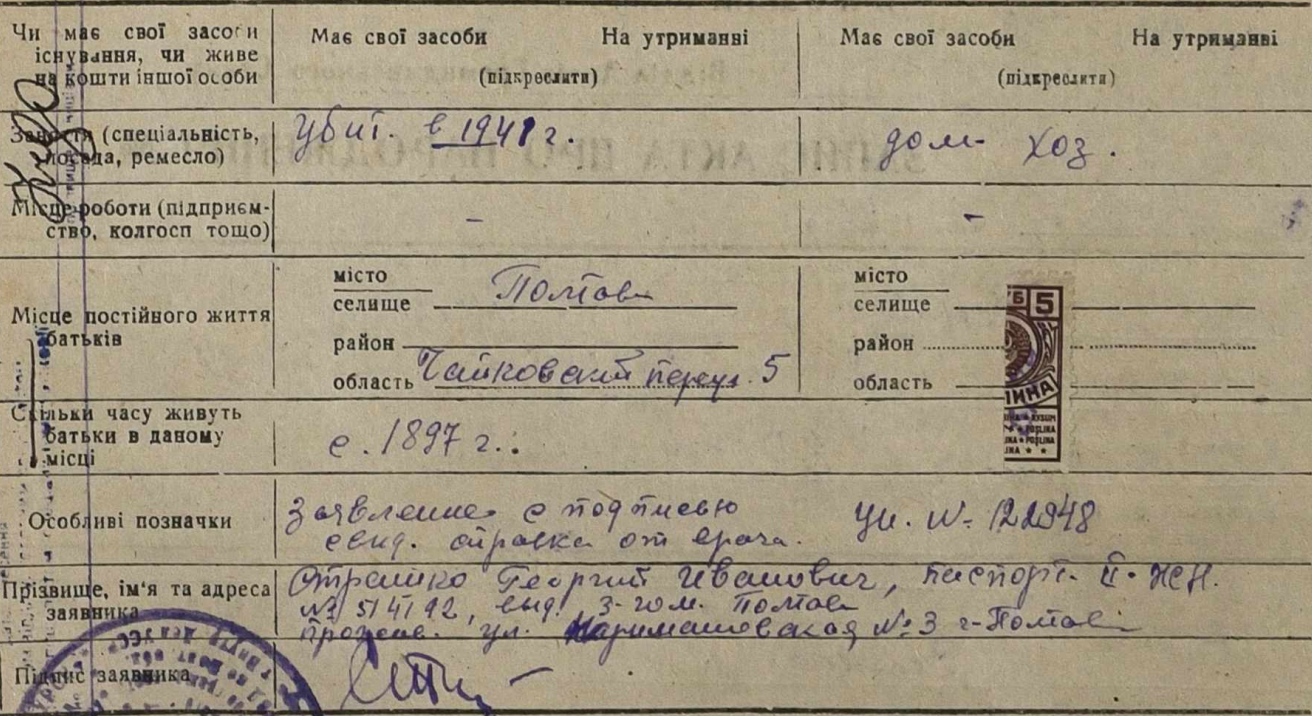 Чи має свої засоби існування, чи живе на кошти іншої особи
Має свої засоби На утриманні
(підкреслити)
Має свої засоби На утриманні
(підкреслити)
Заняття (спеціальність, посада, ремесло)
убит. в 1941 г.
дом. хоз.
Місце роботи (підприєм-
ство, колгосп тощо)
-
-
Місце постійного життя
батьків
місто
селище Полтава
район
область Чайковский переул. 5
місто
селище
район
область
5
Скільки часу живуть
батьки в даному
місці
с. 1897 г.
Особливі позначки
Заявление с подписью
свид. справка от врача.
Прізвище, ім'я та адреса
заявника
Георгий Иванович, паспорт II-ЖН.
выд. 3-гом. Полтава
ул. №3 г-Полтава
Підпис заявника